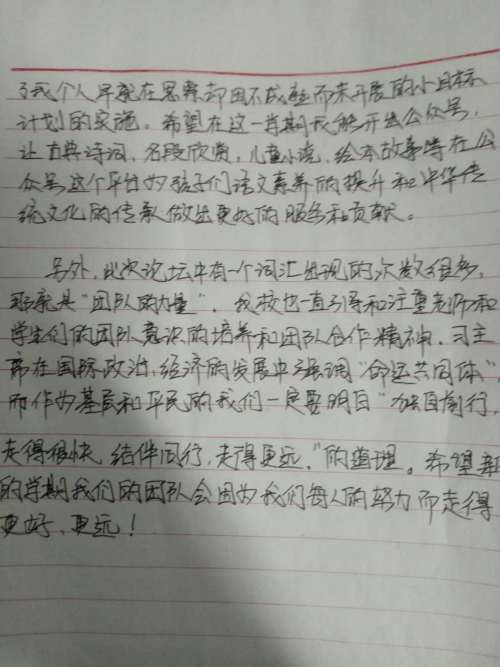 了我个人早就在思索却因不成熟而未开展的小目标
计划的实施。希望在这一学期我能开出公众号,
让古典诗词,名段欣赏,儿童小说,绘本故事等在公
众号这个平台为孩子们语文素养的提升和中华传
统文化的传承做出更好的服务和贡献。
另外,此次论坛中有一个词汇出现的次数很多,
那就是“团队的力量”。我校也一直引导和注重老师和
学生们的团队意识的培养和团队合作精神。习主
席在国际政治,经济的发展中强调“命运共同体”
而作为基层和平民的我们一定要明白“独自前行,
走得很快,结伴同行,走得更远。”的道理。希望新
的学期我们的团队会因为我们每人的努力而走得
更好、更远!